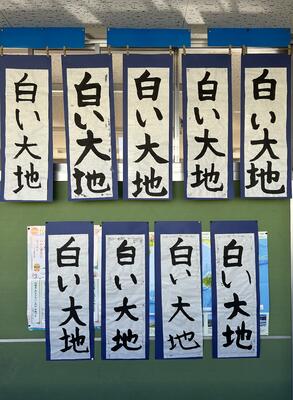 白い大地
白い大地
白い大地
白い大地
白い大地
白い大地
白い大地
白い大地
白い大地